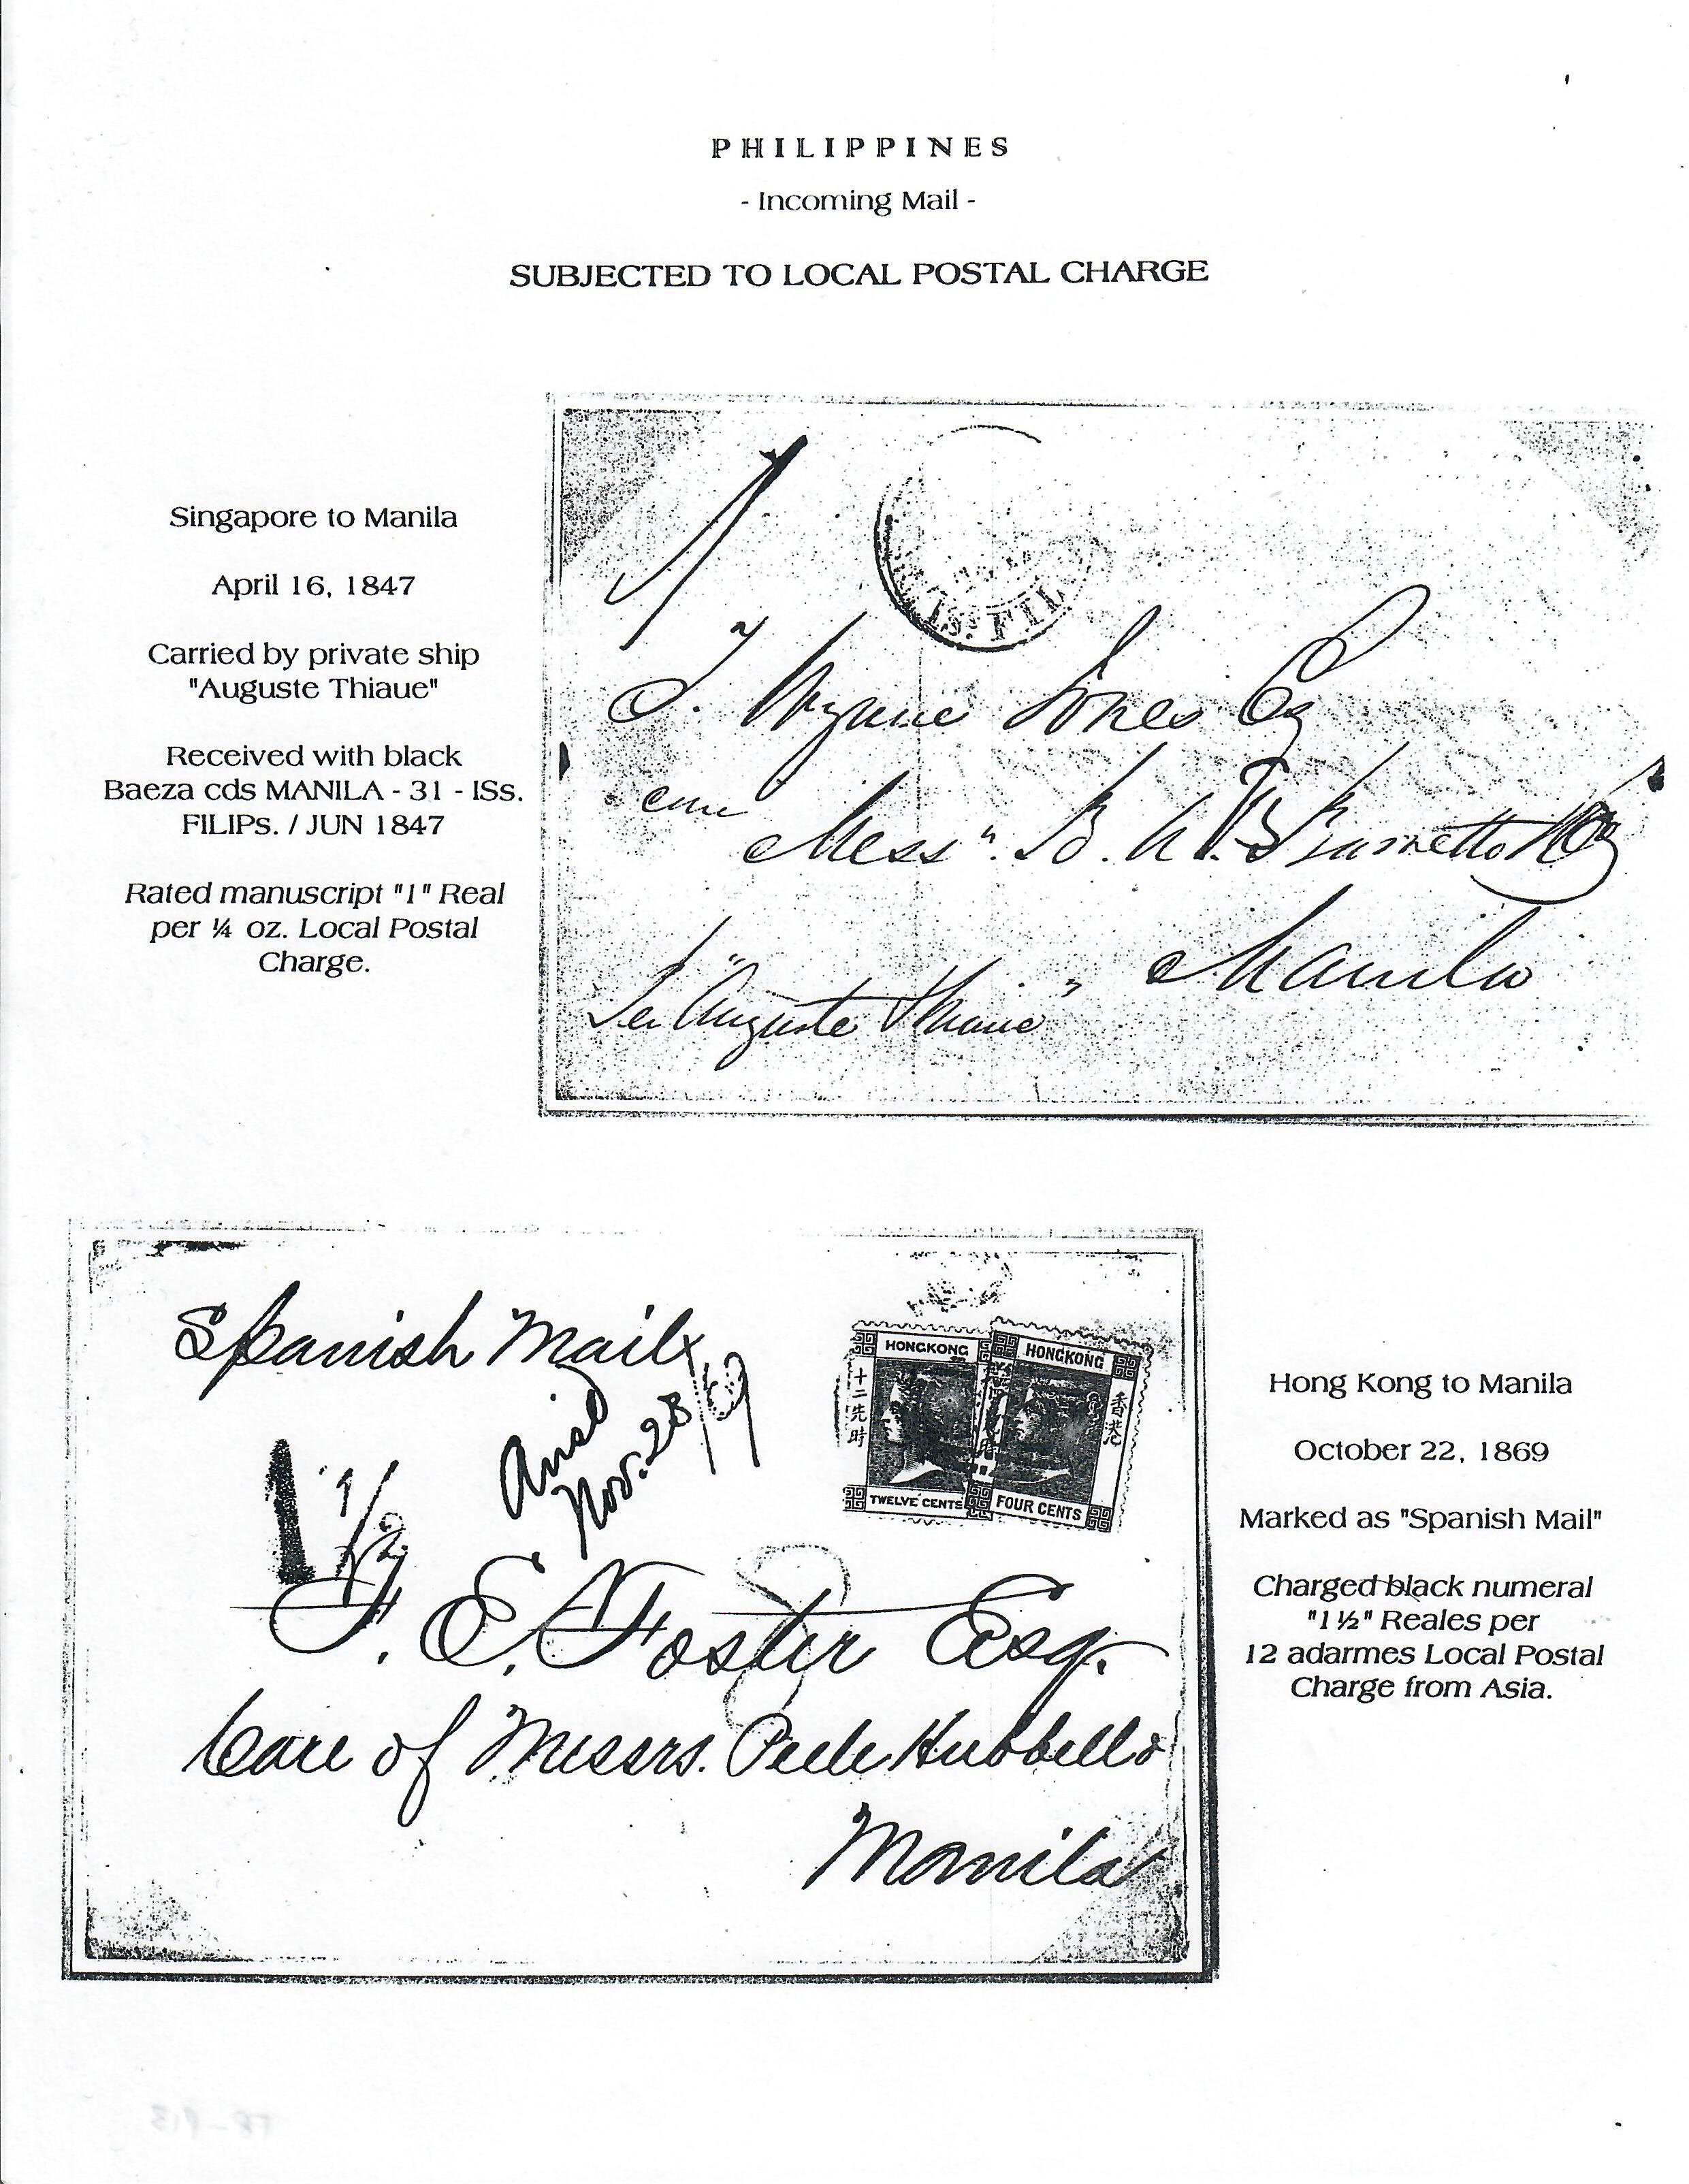 PHILIPPINES
- Incoming Mail -
SUBJECTED TO LOCAL POSTAL CHARGE
Singapore to Manila
April 16, 1847
Carried by private ship
"Auguste Thiaue"
Received with black
Baeza cds MANILA - 31 - ISs.
FILIPs. / JUN 1847
Rated manuscript "1" Real
per ¼ oz. Local Postal
Charge.
IS. FIL
Wynne Jones Esq
Mess". B.
Manila
Per "Auguste Thiaue"
Spanish Mail
Nov. 28/69
1 1/2
HONGKONG
十二先時
TWELVE CENTS
HONGKONG
香港
FOUR CENTS
F. E. Foster Esq.
Care of Messrs. Peele Hubbell &
Manila
Hong Kong to Manila
October 22, 1869
Marked as "Spanish Mail"
Charged black numeral
"1½" Reales per
12 adarmes Local Postal
Charge from Asia.